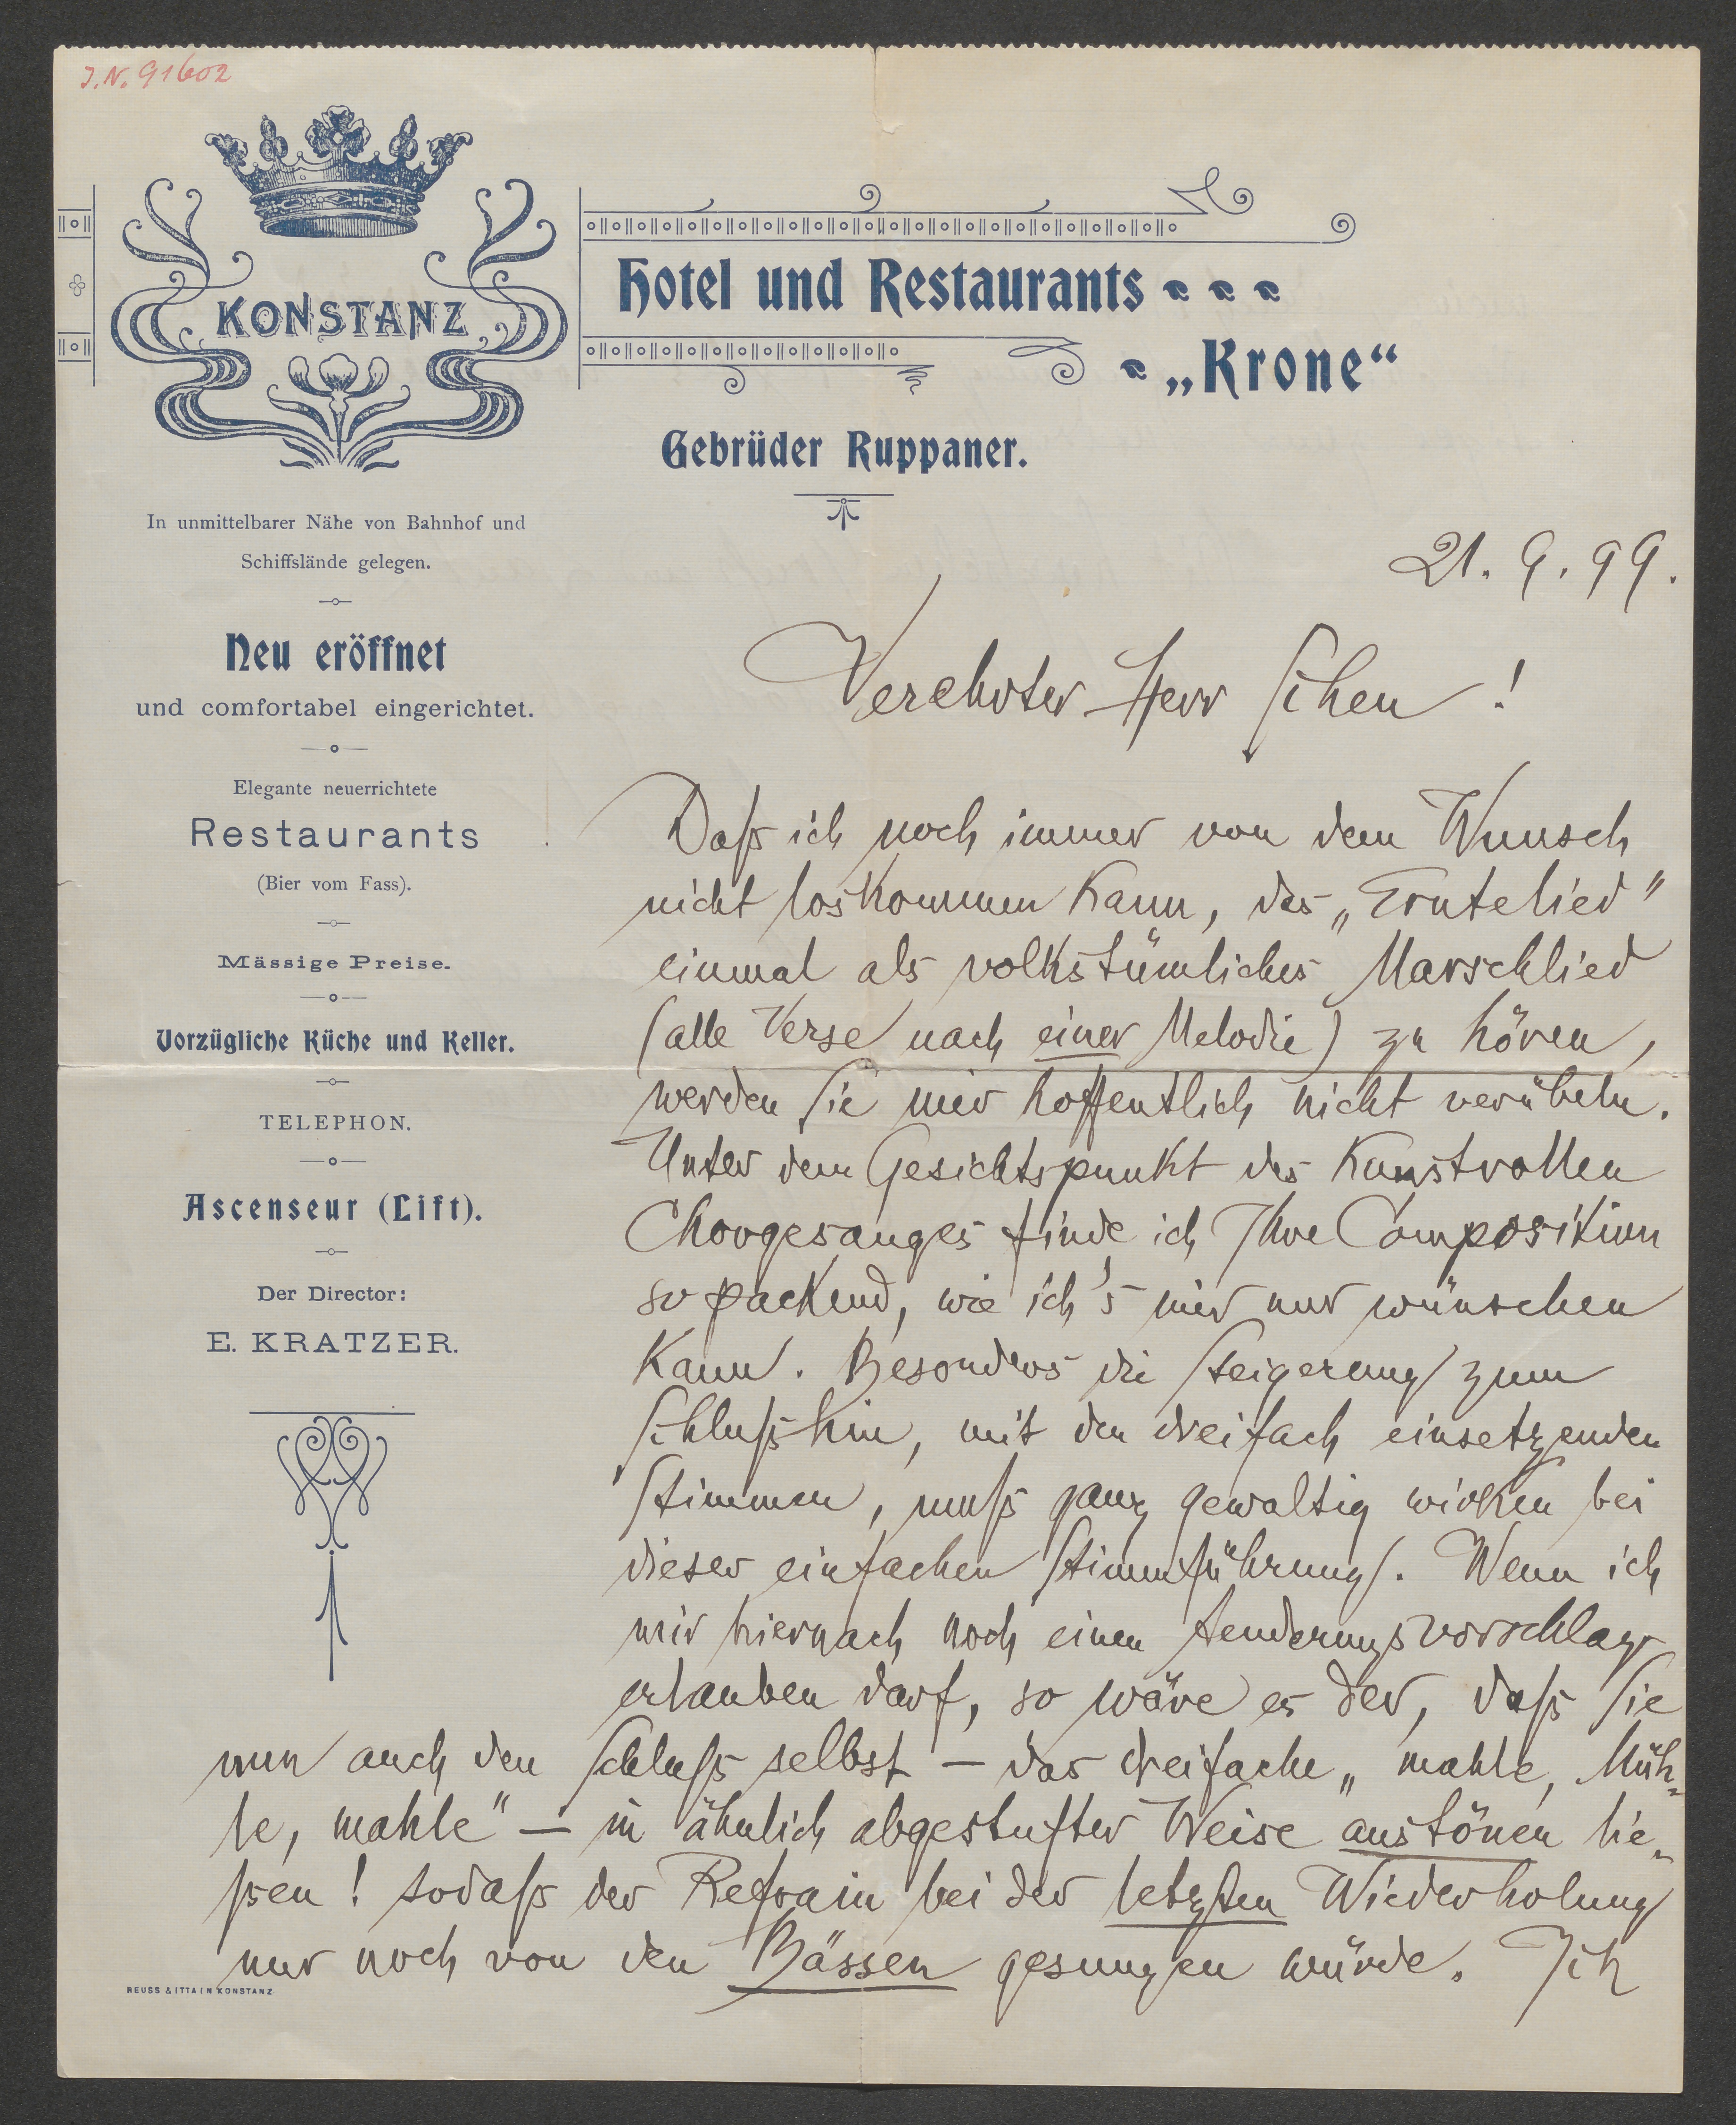 J. N. 91602
KONSTANZ
Hotel und Restaurants
„Krone“
Gebrüder Ruppaner.
In unmittelbarer Nähe von Bahnhof und
Schiffslände gelegen.
Neu eröffnet
und comfortabel eingerichtet.
Elegante neuerrichtete
Restaurants
(Bier vom Fass).
Mässige Preise.
Vorzügliche Küche und Keller.
TELEPHON.
Ascenseur (Lift).
Der Director:
E. KRATZER.
21. 9. 99.
Verehrter Herr Scheu!
Daß ich noch immer von dem Wunsch
nicht loskommen kann, das „Erntelied"
einmal als volkstümliches Marschlied
(alle Verse nach einer Melodie) zu hören,
werden Sie mir hoffentlich nicht verübeln.
Unter dem Gesichtspunkt des kunstvollen
Chorgesanges finde ich Ihre Composition
so packend, wie ich's mir nur wünschen
kann. Besonders die Steigerung zum
Schluß hin, mit den dreifach einsetzenden
Stimmen, muß ganz gewaltig wirken bei
dieser einfachen Stimmführung. Wenn ich
mir hiernach noch einen Aenderungsvorschlag
erlauben darf, so wäre es der, daß Sie
nun auch den Schluß selbst – das dreifache „mahle, Müh-
le, mahle" – in ähnlich abgestufter Weise austönen lie-
ßen! sodaß der Refrain bei der letzten Wiederholung
nur noch von den Bässen gesungen würde. Ich
REUSS & ITTA IN KONSTANZ